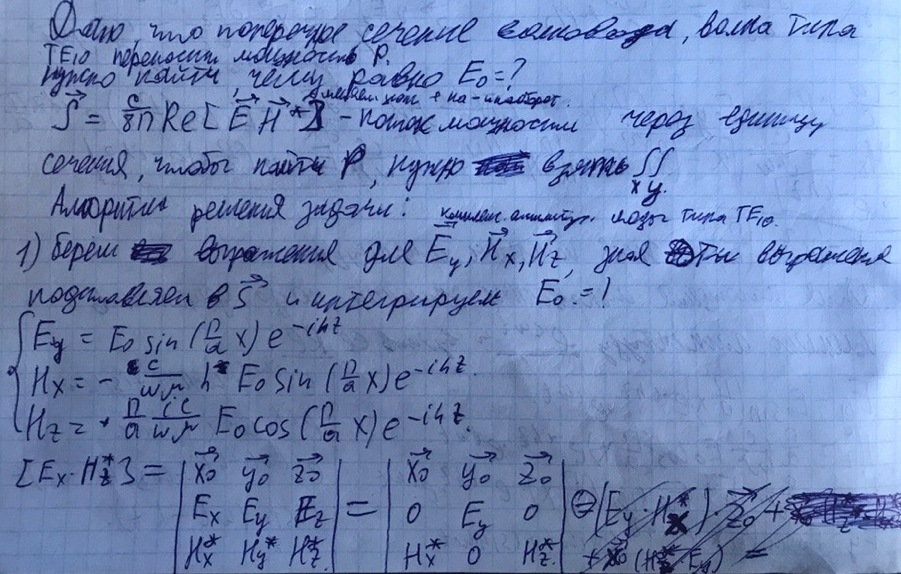 Дано, что поперечное сечение волновода, волна типа
TE₁₀ переносит мощность P.
нужно найти, чему равно E₀=?
S⃗ = c/8π Re[E⃗ H⃗*] - поток мощности через единицу
сечения, чтобы найти P, нужно взять ∬ x y.
Алгоритм решения задачи: моды типа TE₁₀.
1) берем выражения для E⃗y, H⃗x, H⃗z, зная выражения
подставляем в S⃗ и интегрируем E₀=?
Ey = E₀ sin(π/a x) e^-ihz
Hx = - c/ωμ h E₀ sin(π/a x) e^-ihz.
Hz = π/a ic/ωμ E₀ cos(π/a x) e^-ihz.
[Ex·Hz*] = | x⃗₀ y⃗₀ z⃗₀ | = | x⃗₀ y⃗₀ z⃗₀ |
| Ex Ey Ez | | 0 Ey 0 | (Ey·Hx*)·z⃗₀ +
| Hx* Hy* Hz* | | Hx* 0 Hz* | + x₀ (Hz* Ey) =